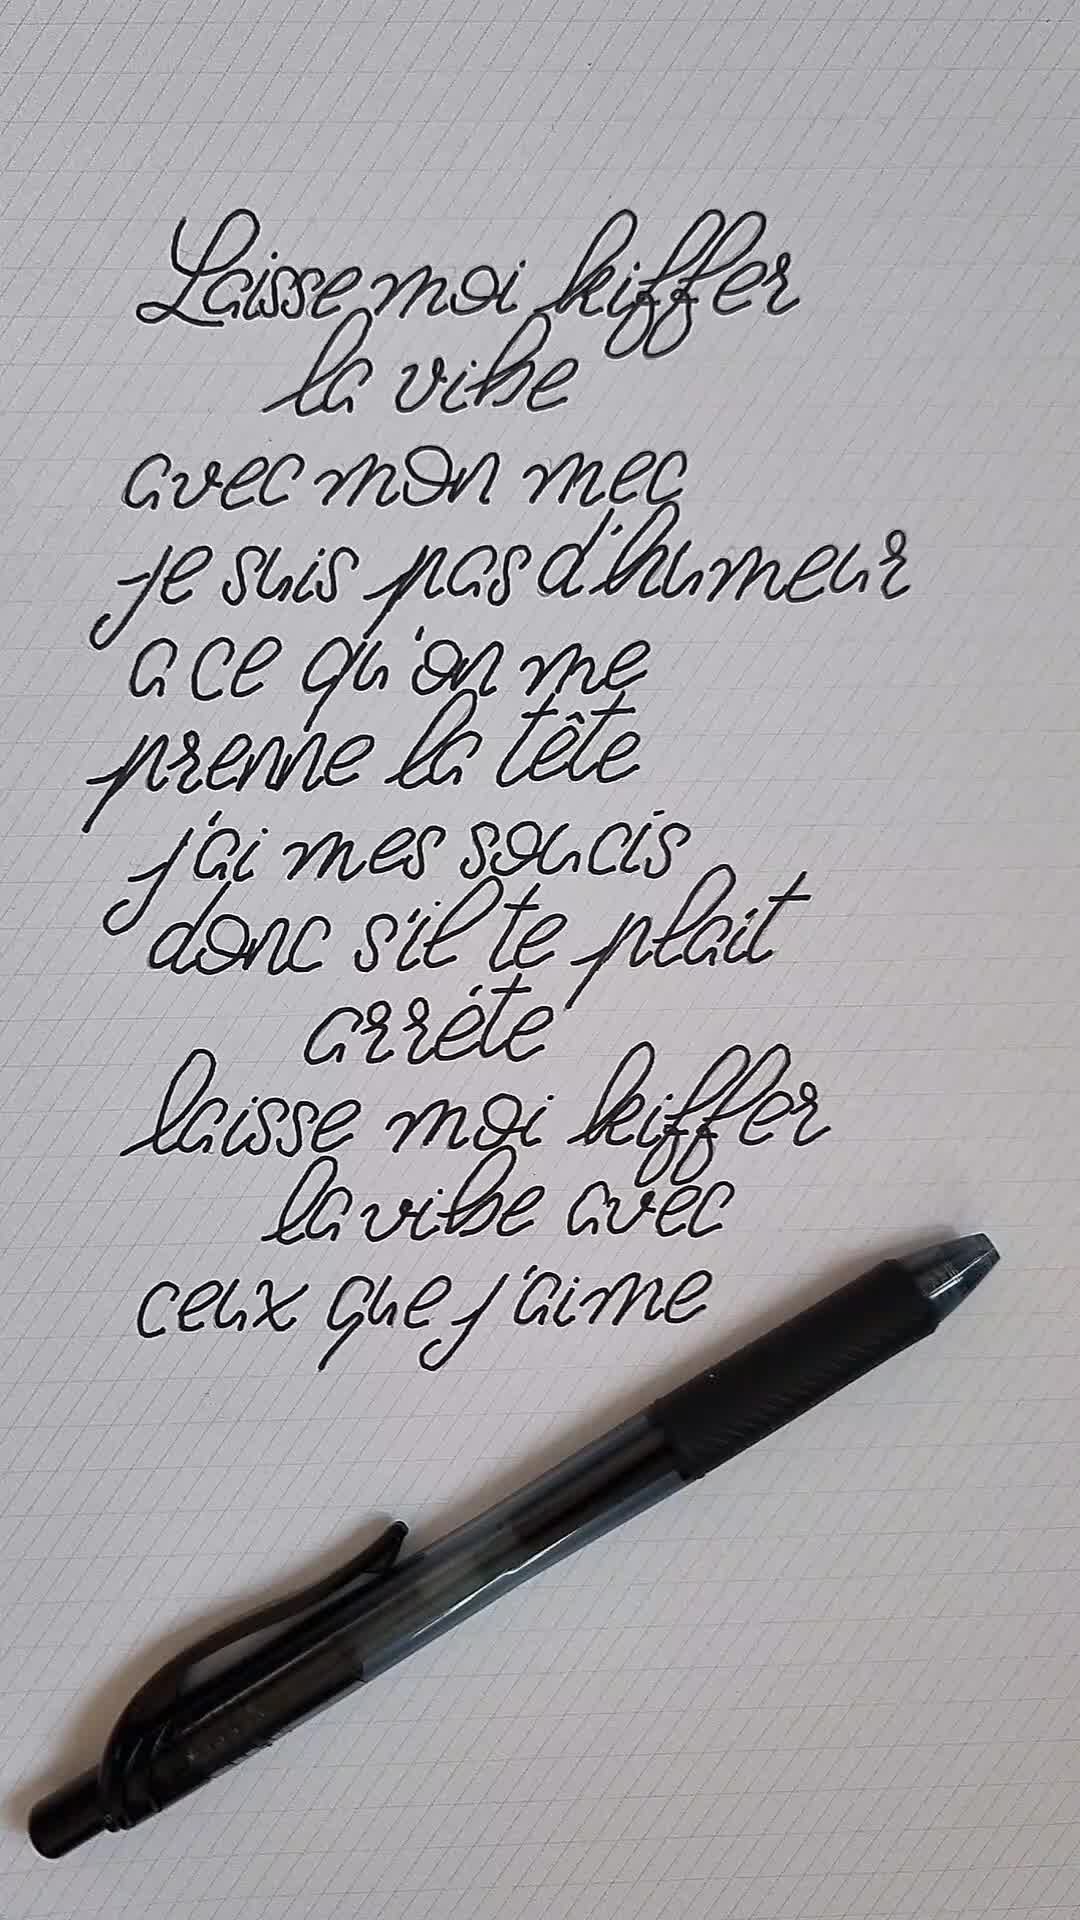 Laisse moi kiffer
la vibe
avec mon mec
je suis pas d'humeur
a ce qu'on me
prenne la tête
j'ai mes soucis
donc s'il te plait
arréte
laisse moi kiffer
la vibe avec
ceux que j'aime